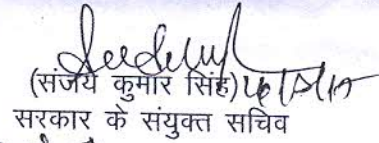 (संजय कुमार सिंह)
सरकार के संयुक्त सचिव